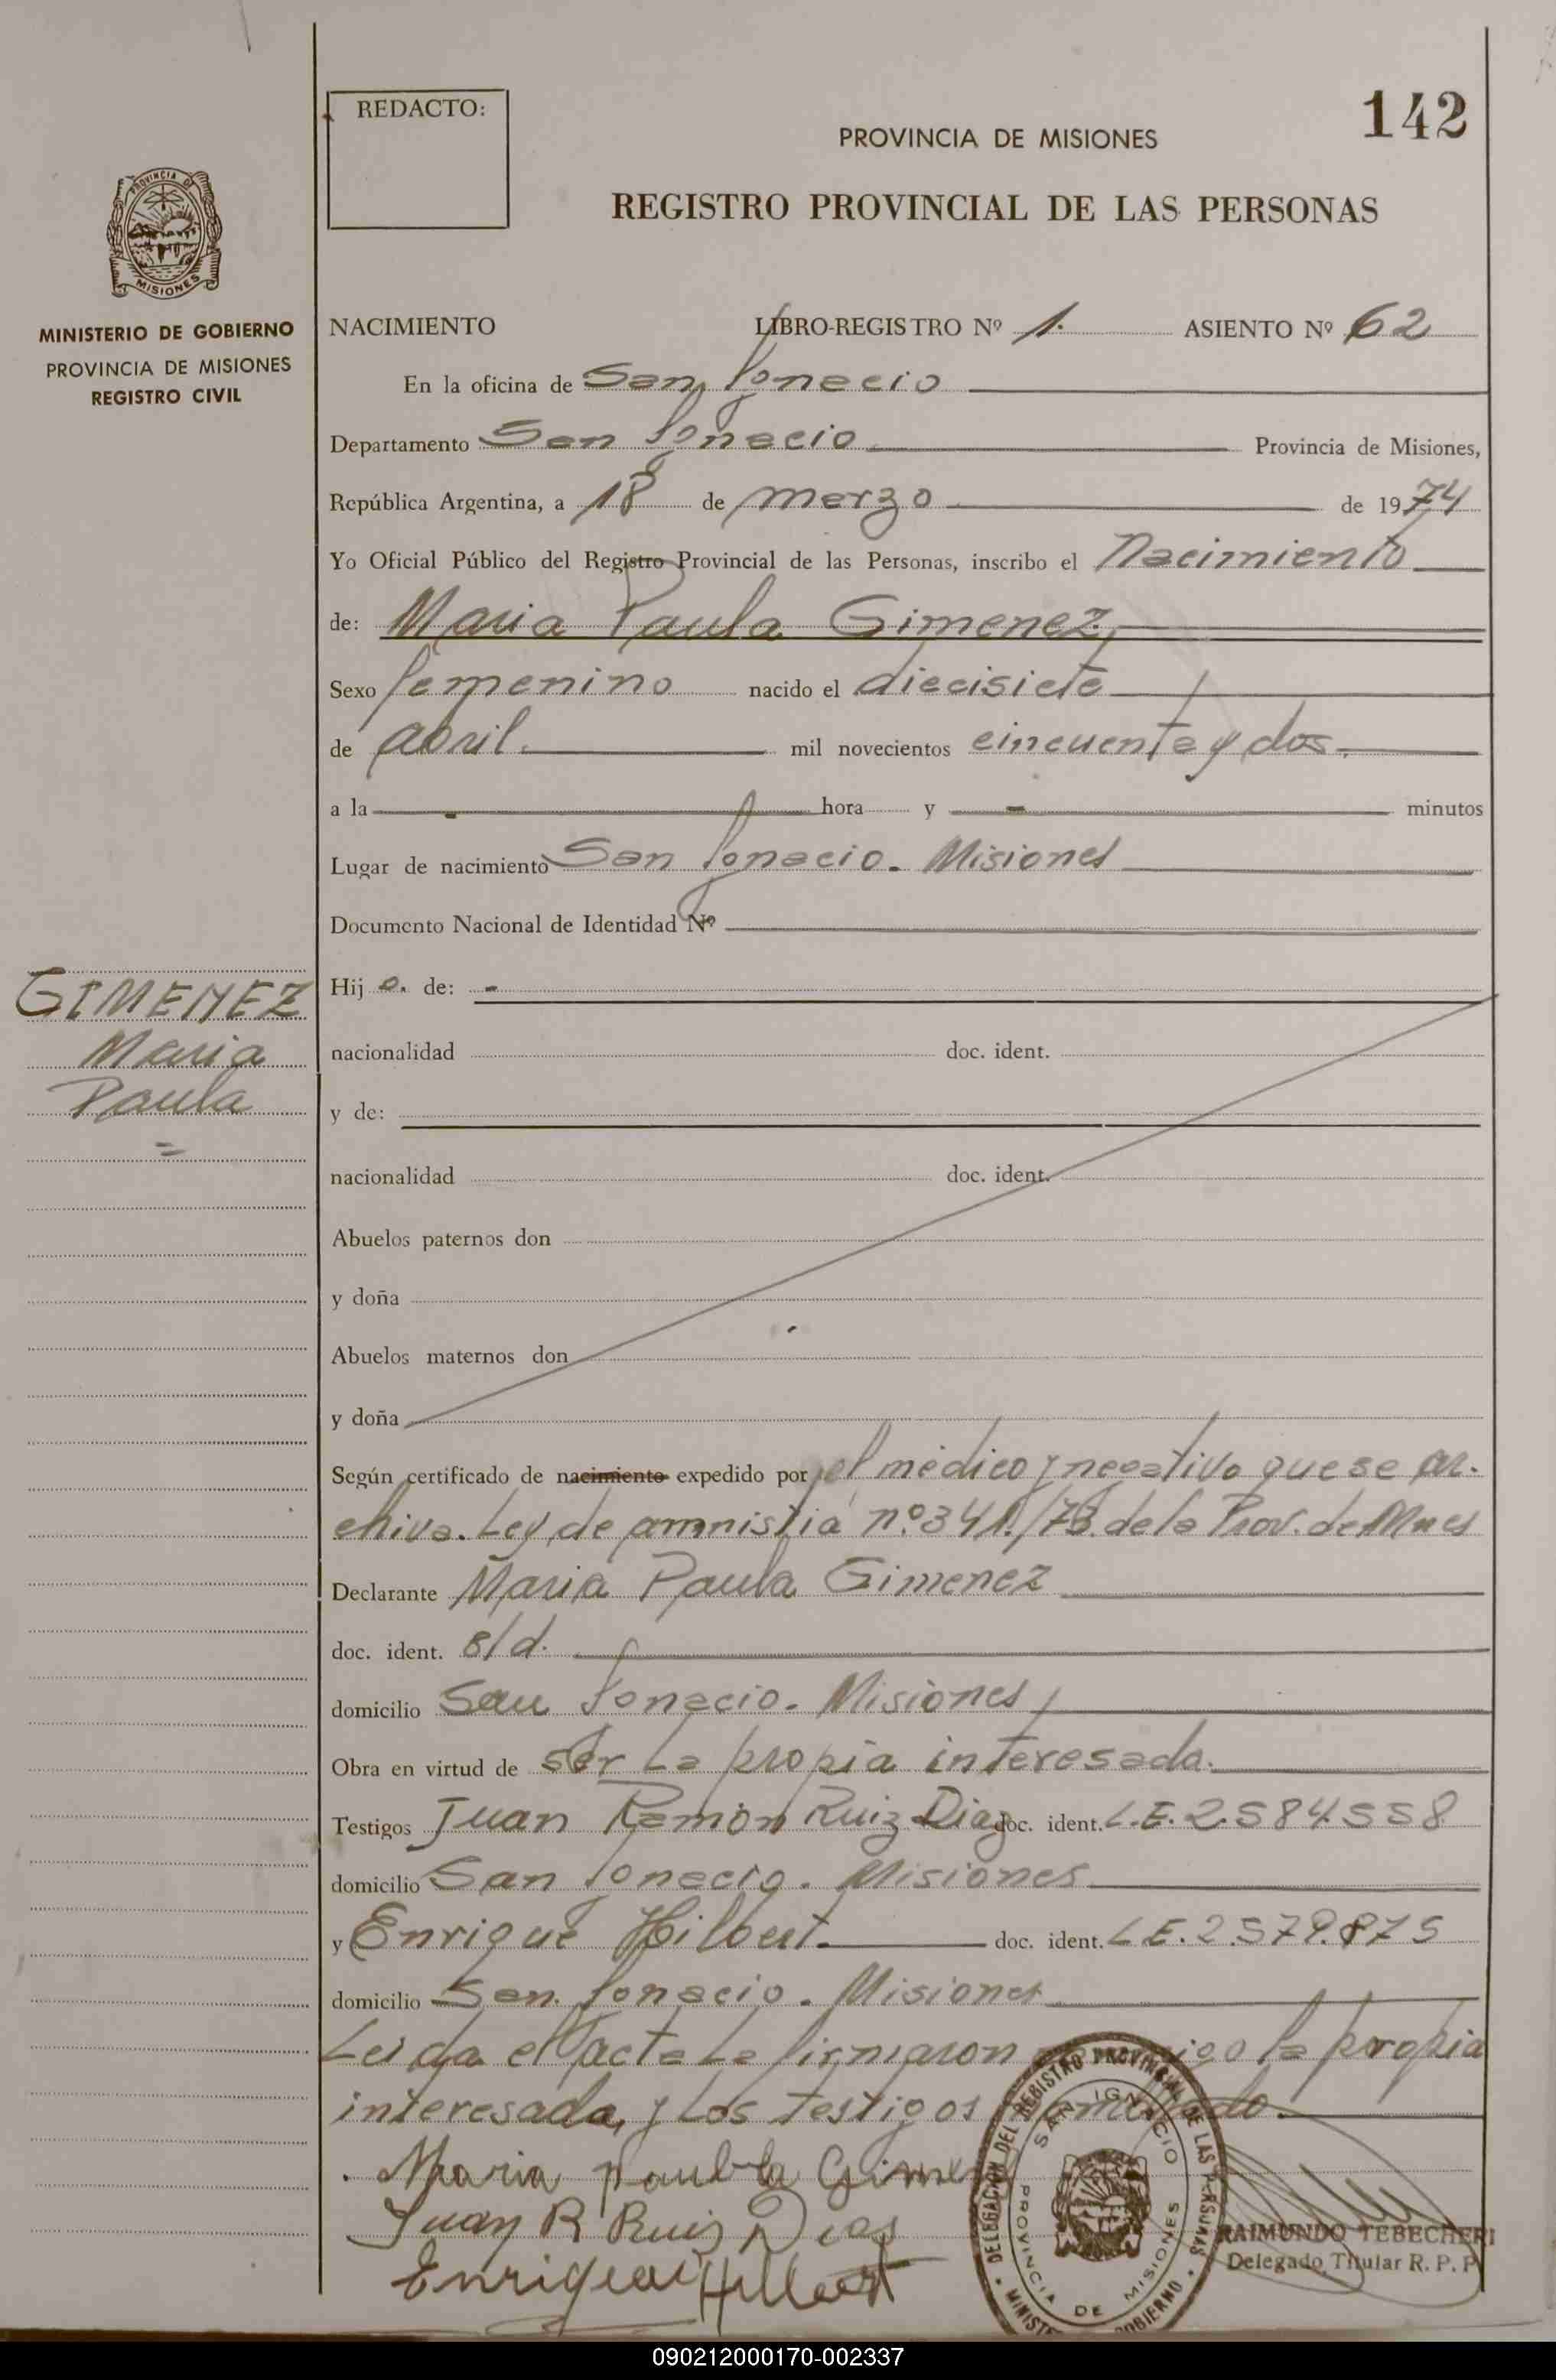 REDACTO:
142
PROVINCIA DE MISIONES
REGISTRO PROVINCIAL DE LAS PERSONAS
PROVINCIA DE
MISIONES
MINISTERIO DE GOBIERNO
PROVINCIA DE MISIONES
REGISTRO CIVIL
NACIMIENTO LIBRO-REGISTRO Nº 1. ASIENTO Nº 62
En la oficina de San Ignacio
Departamento San Ignacio Provincia de Misiones,
República Argentina, a 18 de marzo de 1974
Yo Oficial Público del Registro Provincial de las Personas, inscribo el Nacimiento
de: Maria Paula Gimenez,
Sexo femenino nacido el diecisiete
de abril. mil novecientos cincuenta y dos.
a la - hora y - minutos
Lugar de nacimiento San Ignacio. Misiones
Documento Nacional de Identidad Nº
GIMENEZ
Maria
Paula
=
Hij a. de: -
nacionalidad doc. ident.
y de:
nacionalidad doc. ident.
Abuelos paternos don
y doña
Abuelos maternos don
y doña
Según certificado de nacimiento expedido por el médico y negativo que se ar-
chiva. Ley de amnistia nº 341./73. de la Prov. de Mnes
Declarante Maria Paula Gimenez
doc. ident. s/d.
domicilio San Ignacio. Misiones
Obra en virtud de ser la propia interesada.
Testigos Juan Ramón Ruiz Diaz doc. ident. L.E. 2584558
domicilio San Ignacio. Misiones
y Enrique Hilbert. doc. ident. L.E. 2.579.875
domicilio San Ignacio. Misiones
Leida el acta la firmaron la propia
interesada, y los testigos
Maria Paula Gimen
Juan R Ruis Dias
Enrique Hilbert
DELEGACION DEL REGISTRO PROVINCIAL DE LAS PERSONAS
SAN IGNACIO
PROVINCIA DE MISIONES
RAIMUNDO TEBECHERI
Delegado Titular R. P. P
090212000170-002337